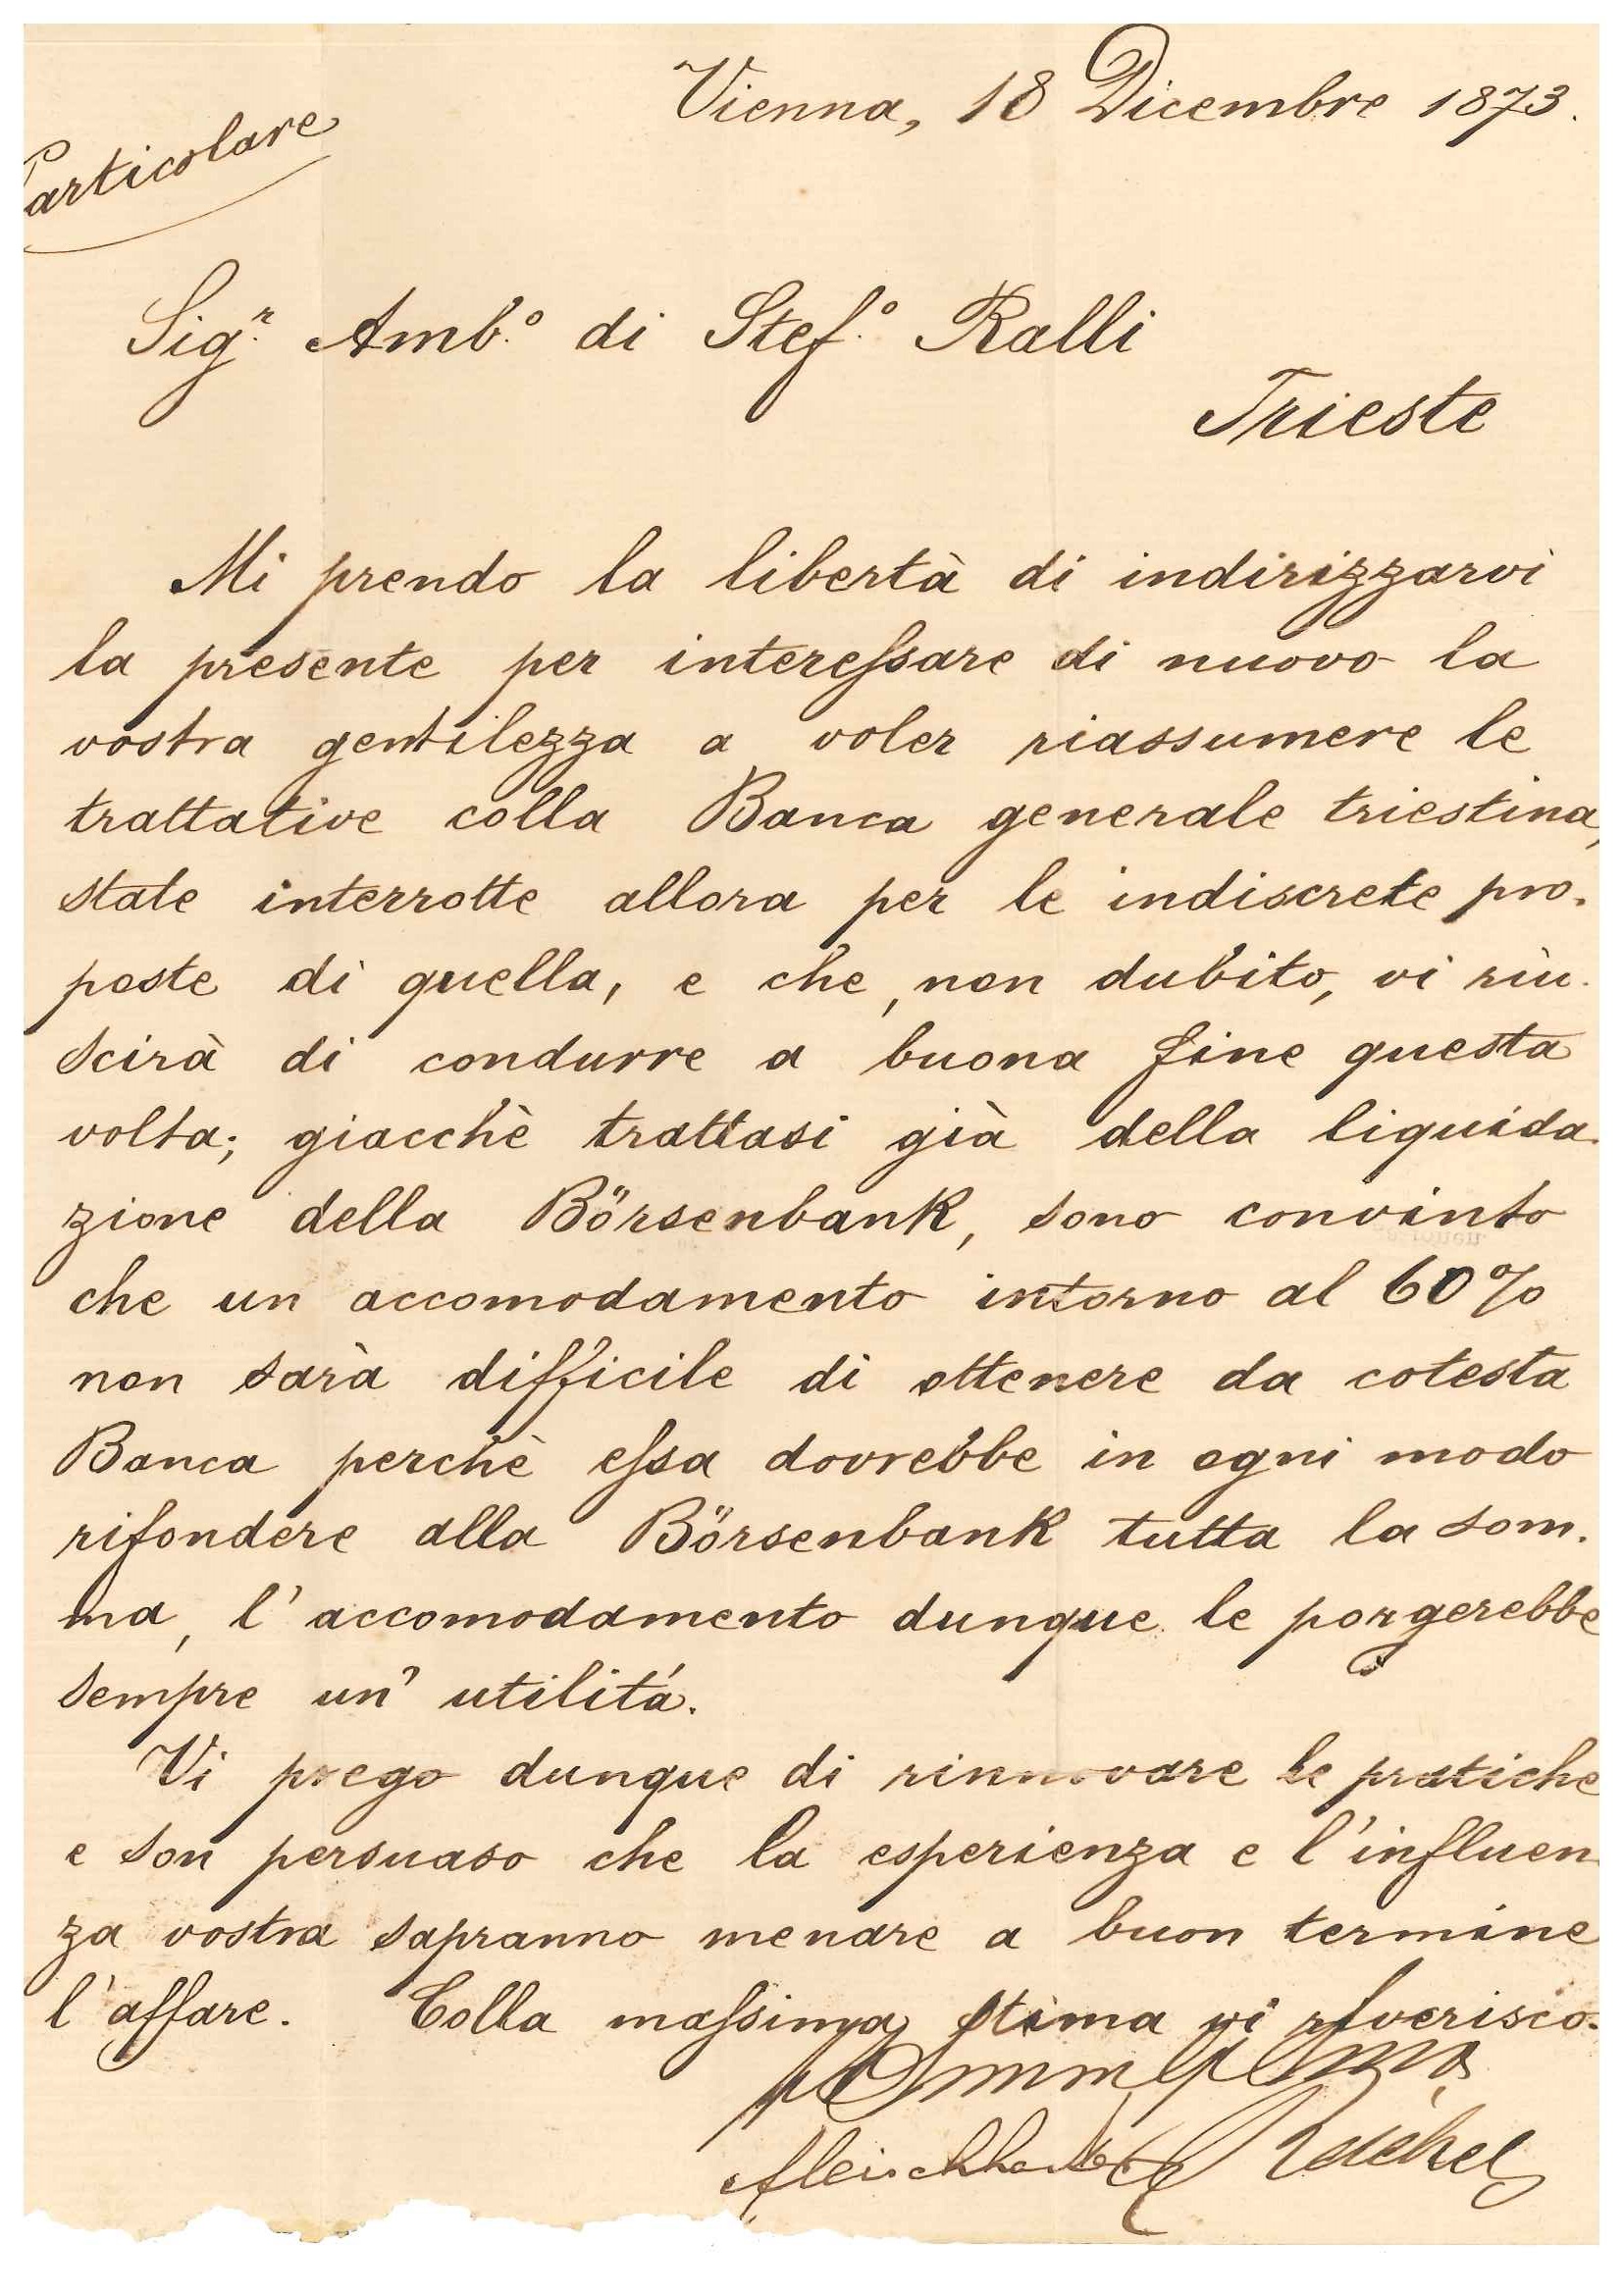 Vienna, 18 Dicembre 1873.
Particolare
Sigr. Amb.o di Stef.o Ralli
Trieste
Mi prendo la libertà di indirizzarvi
la presente per interessare di nuovo la
vostra gentilezza a voler riassumere le
trattative colla Banca generale triestina,
state interrotte allora per le indiscrete pro-
poste di quella, e che, non dubito, vi riu-
scirà di condurre a buona fine questa
volta; giacchè trattasi già della liquida-
zione della Börsenbank, sono convinto
che un accomodamento intorno al 60%
non sarà difficile di ottenere da cotesta
Banca perchè essa dovrebbe in ogni modo
rifondere alla Börsenbank tutta la som-
ma, l'accomodamento dunque le porgerebbe
sempre un' utilitá.
Vi prego dunque di rinnovare le pratiche
e son persuaso che la esperienza e l'influen-
za vostra sapranno menare a buon termine
l'affare. Colla massima stima vi riverisco.